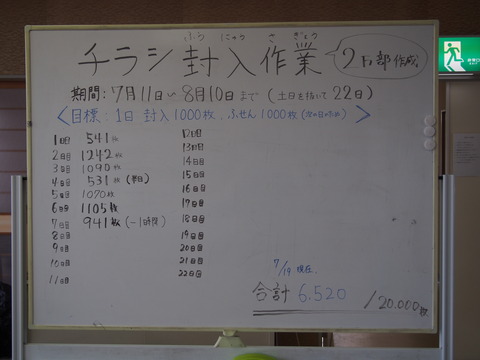 ふう にゅう さ ぎょう
チラシ封入作業
2万部作成
期間:7月11日〜8月10日まで(土日を抜いて22日)
<目標:1日 封入1000枚、ふせん1000枚(次の日のため)>
1日目 541枚
2日目 1242枚
3日目 1090枚
4日目 531枚(半日)
5日目 1070枚
6日目 1105枚
7日目 941枚(-1時間)
8日目
9日目
10日目
11日目
12日目
13日目
14日目
15日目
16日目
17日目
18日目
19日目
20日目
21日目
22日目
7/19 現在.
合計 6.520
/20.000枚